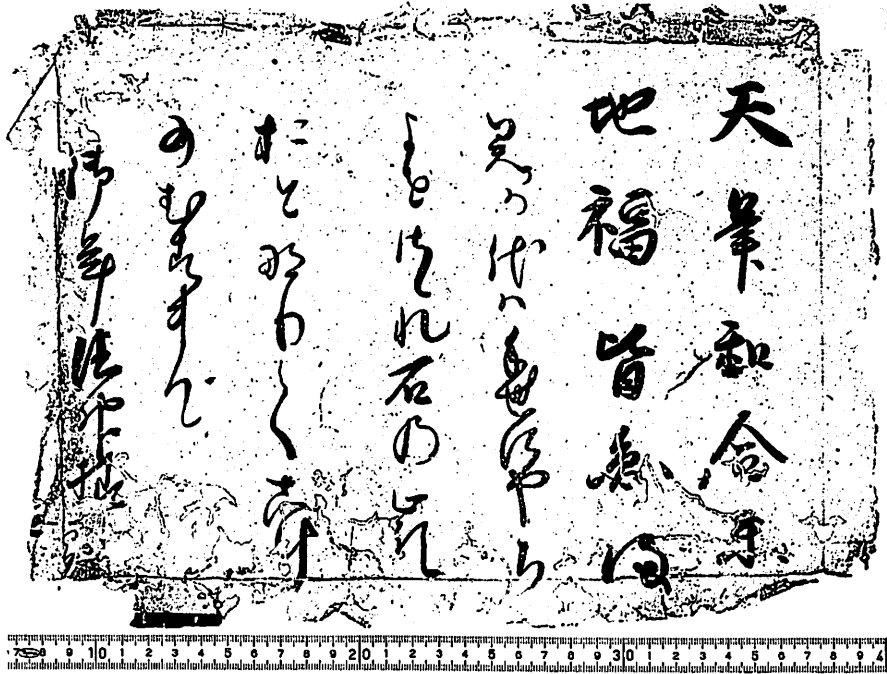 天筆和合楽
地福皆圓満
君か代ハ千世にやち
よ さゝれ石のいは
おとなりて苔
のむすまて
御
7 8 9 10 1 2 3 4 5 6 7 8 9 20 1 2 3 4 5 6 7 8 9 30 1 2 3 4 5 6 7 8 9 4